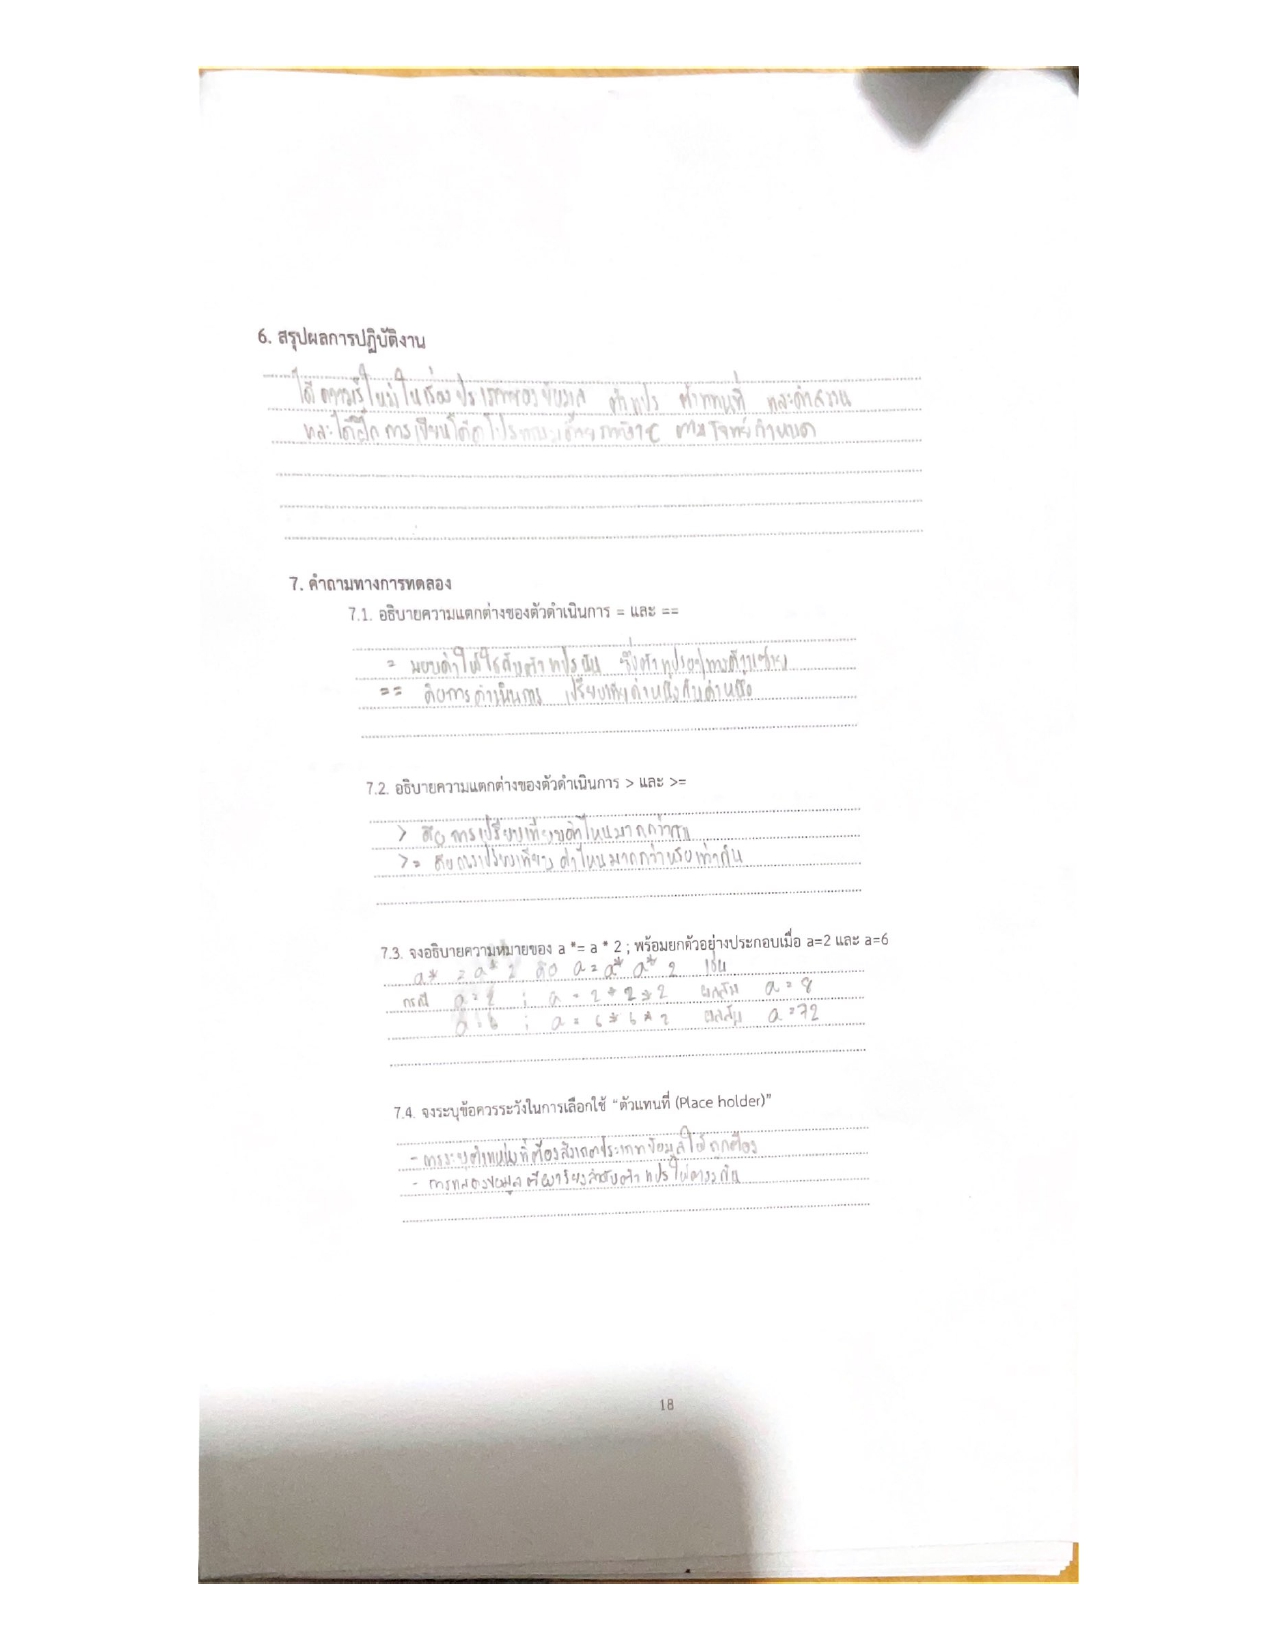 6. สรุปผลการปฏิบัติงาน
ได้ความรู้ใหม่ในเรื่องประเภทของข้อมูล ตัวแปร ตัวแทนที่ และคำสงวน
และได้ฝึกการเขียนโค้ดโปรแกรมด้วยภาษาC ตามโจทย์กำหนด
7. คำถามทางการทดลอง
7.1. อธิบายความแตกต่างของตัวดำเนินการ = และ ==
= มอบค่าให้ใช้กับตัวแปรนั้น ซึ่งตัวแปรอยู่ทางด้านซ้าย
== คือการดำเนินการ เปรียบเทียบค่าหนึ่งกับค่าหนึ่ง
7.2. อธิบายความแตกต่างของตัวดำเนินการ > และ >=
> คือ การเปรียบเทียบค่าไหนมากกว่ากัน
>= คือการเปรียบเทียบ ค่าไหนมากกว่าหรือเท่ากัน
7.3. จงอธิบายความหมายของ a *= a * 2 ; พร้อมยกตัวอย่างประกอบเมื่อ a=2 และ a=6
a* = a* 2 คือ a = a* a* 2 เช่น
กรณี a = 2 ; a = 2 * 2 * 2 ผลลัพ a = 8
a = 6 ; a = 6 * 6 * 2 ผลลัพ a = 72
7.4. จงระบุข้อควรระวังในการเลือกใช้ "ตัวแทนที่ (Place holder)"
- การระบุตำแหน่งที่ต้องสังเกตประเภทข้อมูลให้ถูกต้อง
- การแสดงข้อมูล สำหรับตัวแปรให้ตรงกัน
18